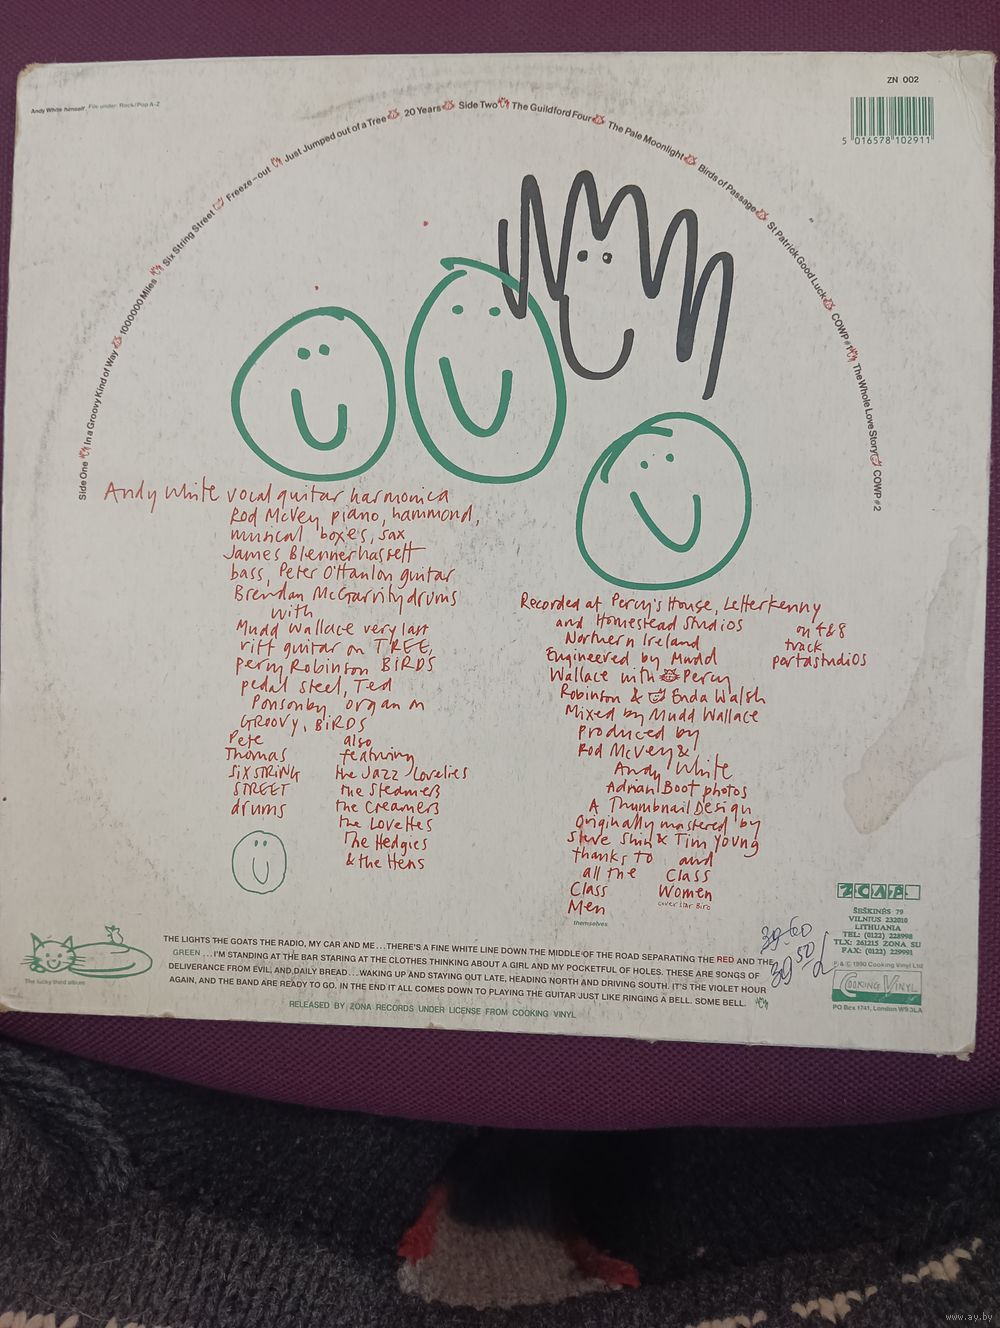 Andy White himself, File under: Rock/Pop A-Z
ZN 002
5 016578 102911
Side One In a Groovy Kind of Way 1000000 Miles Six String Street Freeze-out Just Jumped out of a Tree 20 Years Side Two The Guildford Four The Pale Moonlight Birds of Passage St Patrick Good Luck COWP #1 The Whole Love Story COWP #2
Andy White vocal guitar harmonica
Rod McVey piano, hammond,
musical boxes, sax
James Blennerhassett
bass, Peter O'Hanlon guitar
Brendan McGarrity drums
with
Mudd Wallace very last
riff guitar on TREE,
Percy Robinson BIRDS
pedal steel, Ted
Ponsonby organ on
GROOVY, BIRDS
Pete
Thomas
SIX STRING
STREET
drums
also
featuring
the Jazz Lovelies
the Steamers
the Creamers
the Lovettes
The Hedgies
& the Hens
Recorded at Percy's House, Letterkenny
and Homestead Studios
Northern Ireland
on 4&8
track
portastudios
Engineered by Mudd
Wallace with Percy
Robinson & Enda Walsh
Mixed by Mudd Wallace
produced by
Rod McVey &
Andy White
Adrian Boot photos
A Thumbnail Design
Originally mastered by
Steve Shin & Tim Young
thanks to and
all the Class
Class Women
Men cover star Biro
themselves
ZONA
ŠEŠKINĖS 79
VILNIUS 232010
LITHUANIA
TEL: (0122) 228998
TLX: 261215 ZONA SU
FAX: (0122) 229991
P & © 1990 Cooking Vinyl Ltd
COOKING VINYL
PO Box 1741, London W9 3LA
30-60
30 50
The lucky third album
THE LIGHTS THE GOATS THE RADIO, MY CAR AND ME...THERE'S A FINE WHITE LINE DOWN THE MIDDLE OF THE ROAD SEPARATING THE RED AND THE
GREEN...I'M STANDING AT THE BAR STARING AT THE CLOTHES THINKING ABOUT A GIRL AND MY POCKETFUL OF HOLES. THESE ARE SONGS OF
DELIVERANCE FROM EVIL, AND DAILY BREAD...WAKING UP AND STAYING OUT LATE, HEADING NORTH AND DRIVING SOUTH. IT'S THE VIOLET HOUR
AGAIN, AND THE BAND ARE READY TO GO. IN THE END IT ALL COMES DOWN TO PLAYING THE GUITAR JUST LIKE RINGING A BELL. SOME BELL.
RELEASED BY ZONA RECORDS UNDER LICENSE FROM COOKING VINYL
www.ay.by